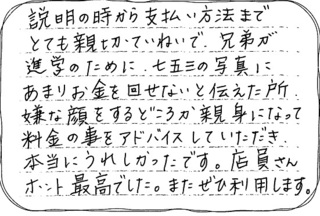 説明の時から支払い方法まで
とても親切ていねいで、兄弟が
進学のために、七五三の写真に
あまりお金を回せないと伝えた所、
嫌な顔をするどころか親身になって
料金の事をアドバイスしていただき、
本当にうれしかったです。店員さん
ホント最高でした。またぜひ利用します。